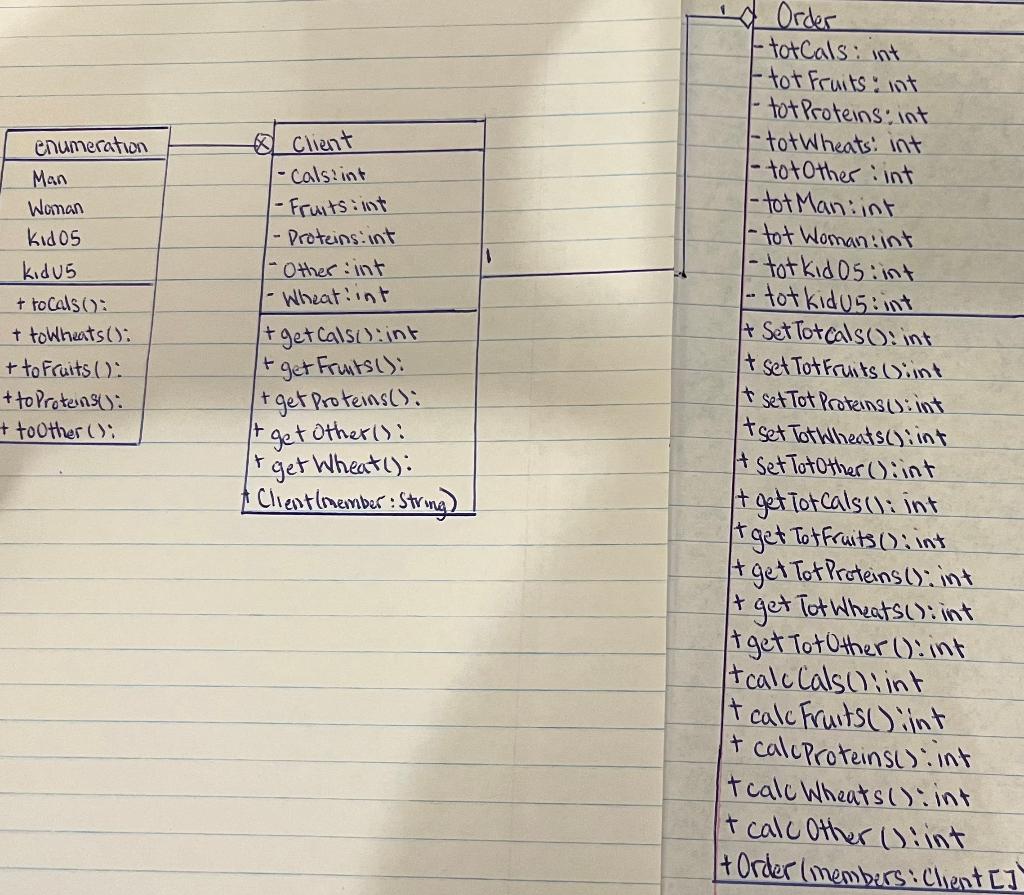 enumeration
Man
Woman
kid O5
kid U5
+ toCals():
+ toWheats():
+ toFruits():
+ toProteins():
+ toOther():
1
Client
- Cals: int
- Fruits: int
- Proteins: int
- Other: int
- Wheat: int
+ getCals(): int
+ getFruits():
+ getProteins():
+ getOther():
+ getWheat():
+ Client(member: String)
1
Order
- totCals: int
- totFruits: int
- totProteins: int
- totWheats: int
- totOther: int
- totMan: int
- totWoman: int
- totkidO5: int
- totkidU5: int
+ SetTotCals(): int
+ setTotFruits(): int
+ setTotProteins(): int
+ setTotWheats(): int
+ SetTotOther(): int
+ getTotCals(): int
+ getTotFruits(): int
+ getTotProteins(): int
+ getTotWheats(): int
+ getTotOther(): int
+ calcCals(): int
+ calcFruits(): int
+ calcProteins(): int
+ calcWheats(): int
+ calcOther(): int
+ Order(members: Client[])